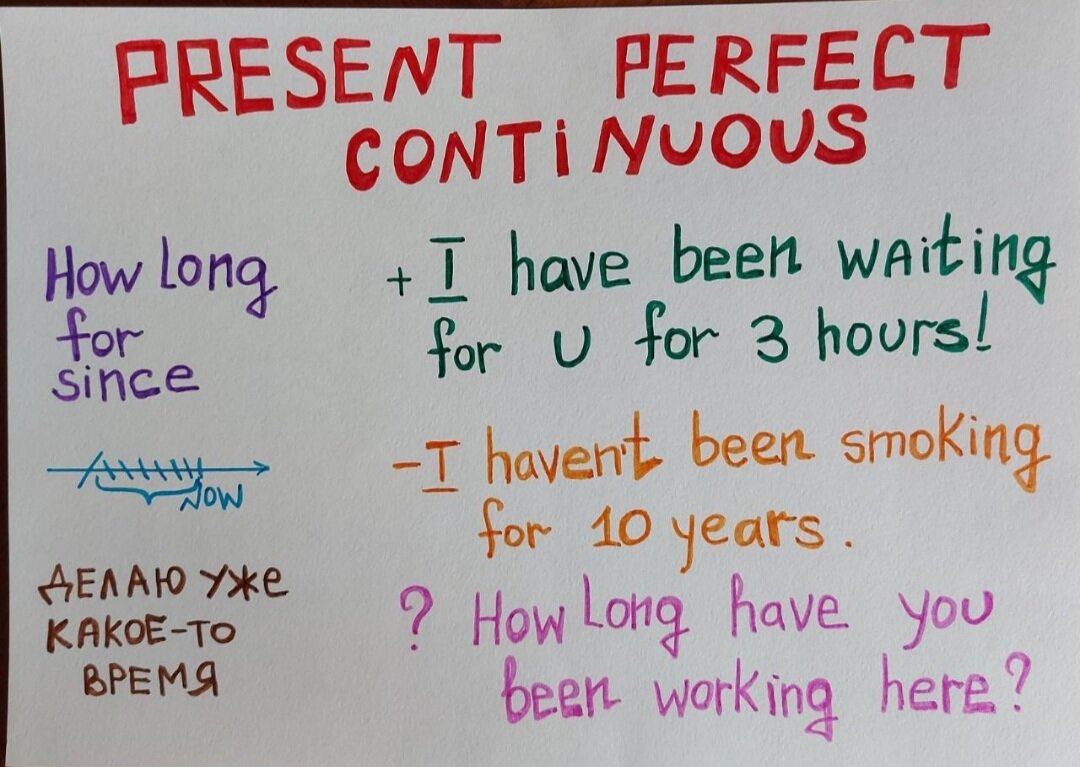 PRESENT PERFECT
CONTiNUOUS
How long
for
since
NOW
ДЕЛАЮ УЖЕ
КАКОЕ-ТО
ВРЕМЯ
+ I have been WAiting
for U for 3 hours!
- I haven't been smoking
for 10 years.
? How Long have you
been working here?